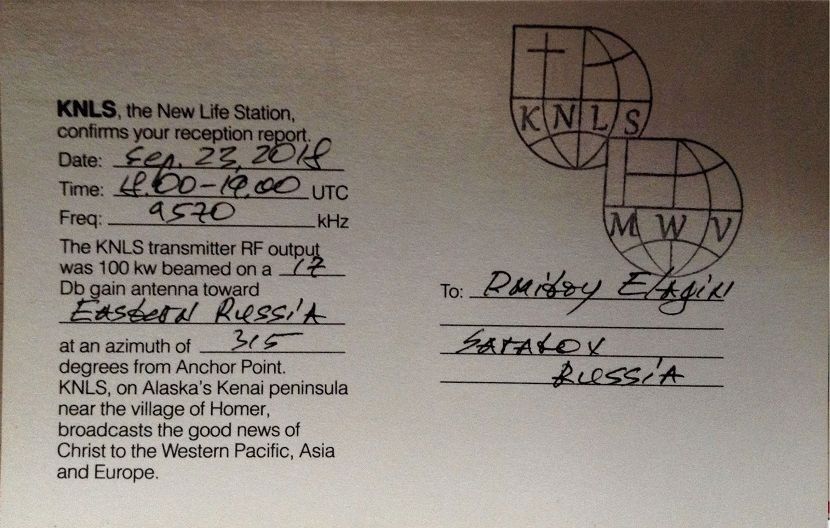 KNLS, the New Life Station,
confirms your reception report.
Date: Sep. 23, 2018
Time: 18.00-19.00 UTC
Freq: 9570 kHz
The KNLS transmitter RF output
was 100 kw beamed on a 17
Db gain antenna toward
Eastern Russia
at an azimuth of 315
degrees from Anchor Point.
KNLS, on Alaska's Kenai peninsula
near the village of Homer,
broadcasts the good news of
Christ to the Western Pacific, Asia
and Europe.
KNLS
MWV
To: Dmitry Elagin
Saratov
Russia